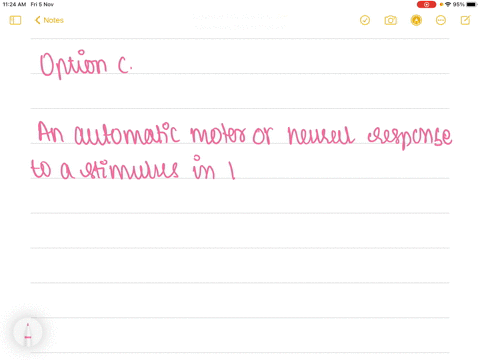 11:24 AM Fri 5 Nov
95%
Notes
Option C.
An automatic motor or neural response
to a stimulus in